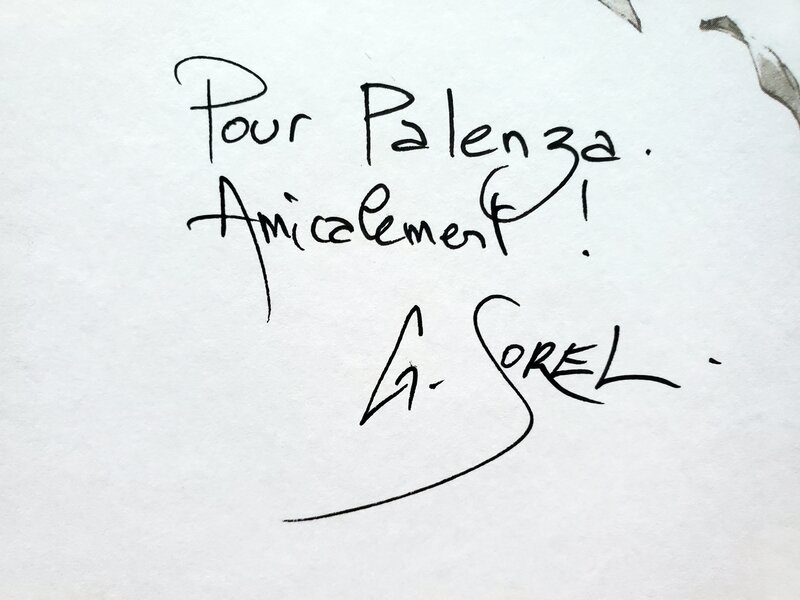 Pour Palenza.
Amicalement !
G. SOREL.